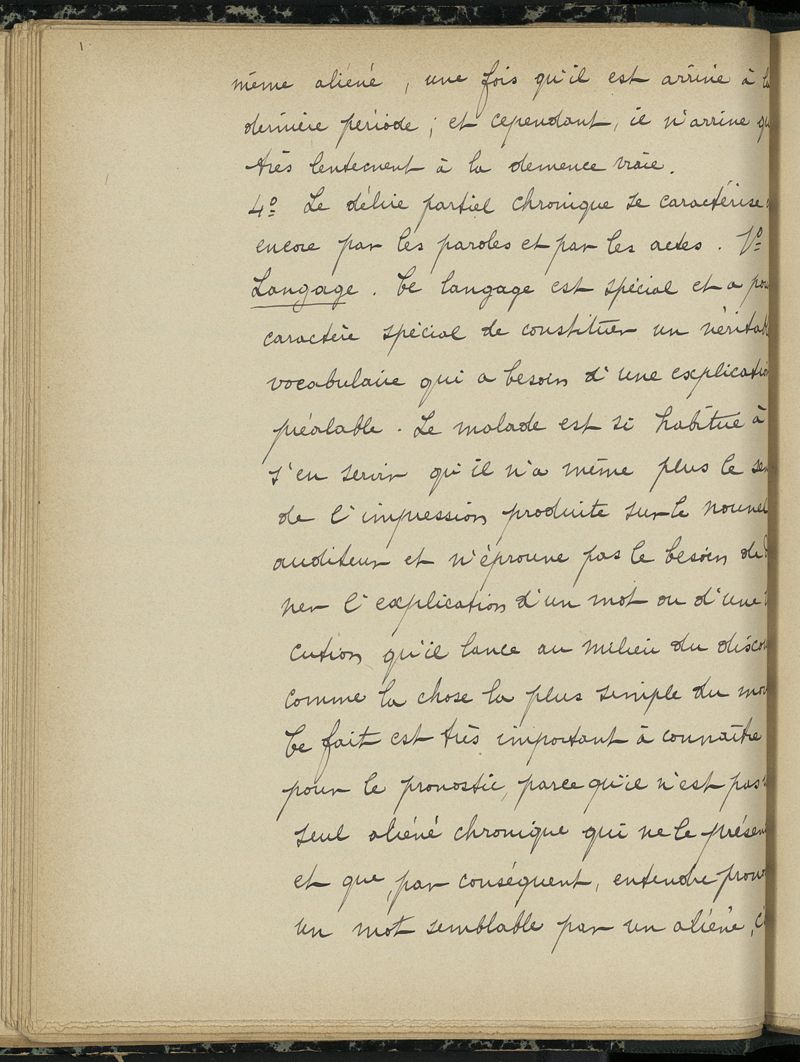 même aliéné, une fois qu'il est arrivé à la
dernière période; et cependant, il n'arrive qu
très lentement à la demence vraie.
4º Le délire partiel chronique se caractérise
encore par les paroles et par les actes. 1º
Langage. Ce langage est spécial et a pou
caractère spécial de constituer un véritab
vocabulaire qui a besoin d'une explicatio
préalable. Le malade est si habitué à
s'en servir qu'il n'a même plus le sen
de l'impression produite sur le nouvel
auditeur et n'éprouve pas le besoin de d
ner l'explication d'un mot ou d'une
cution qu'il lance au milieu du discou
comme la chose la plus simple du mon
Ce fait est très important à connaître
pour le pronostic, parce qu'il n'est pas
seul aliéné chronique qui ne le présen
et que, par conséquent, entendre pron
un mot semblable par un aliéné, c'